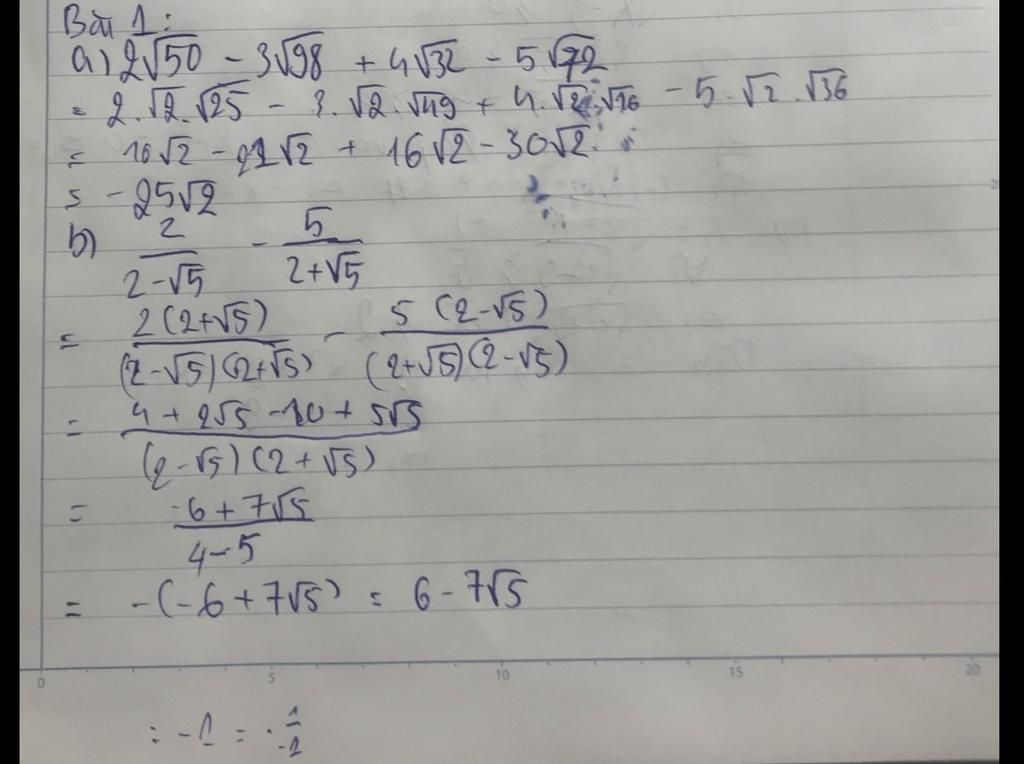 Bài 1:
a) 2√50 - 3√98 + 4√32 - 5√72
= 2.√2.√25 - 3.√2.√49 + 4.√2.√16 - 5.√2.√36
= 10√2 - 21√2 + 16√2 - 30√2
= -25√2
b) 2/(2-√5) - 5/(2+√5)
= 2(2+√5)/((2-√5)(2+√5)) - 5(2-√5)/((2+√5)(2-√5))
= (4 + 2√5 - 10 + 5√5)/((2-√5)(2+√5))
= (-6 + 7√5)/(4-5)
= -(-6 + 7√5) = 6 - 7√5
0 5 10 15 20
: -1 = . 1/-1